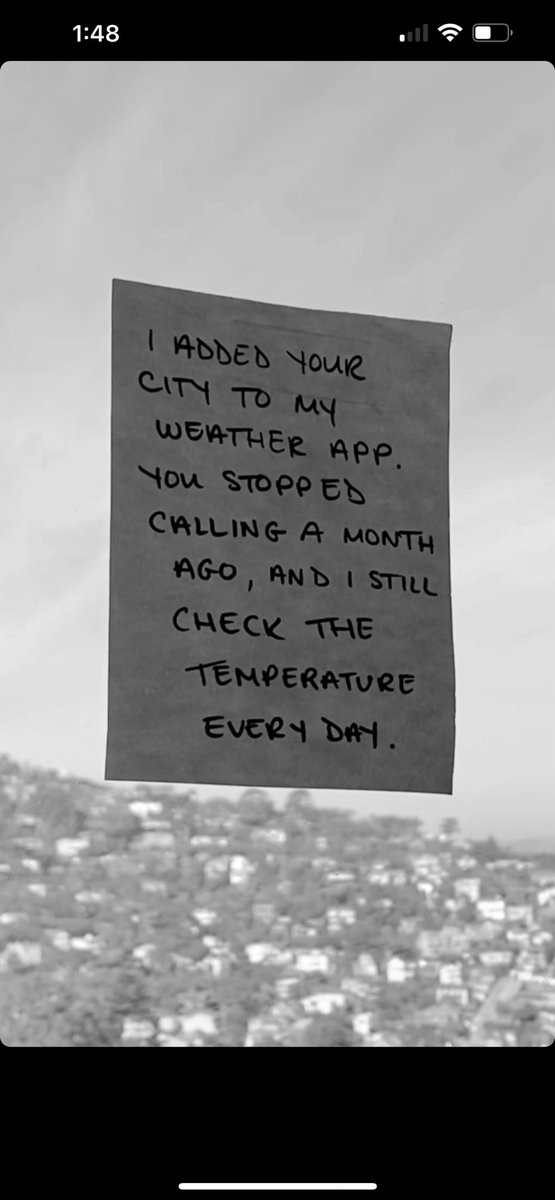 1:48
I ADDED YOUR
CITY TO MY
WEATHER APP.
YOU STOPPED
CALLING A MONTH
AGO, AND I STILL
CHECK THE
TEMPERATURE
EVERY DAY.